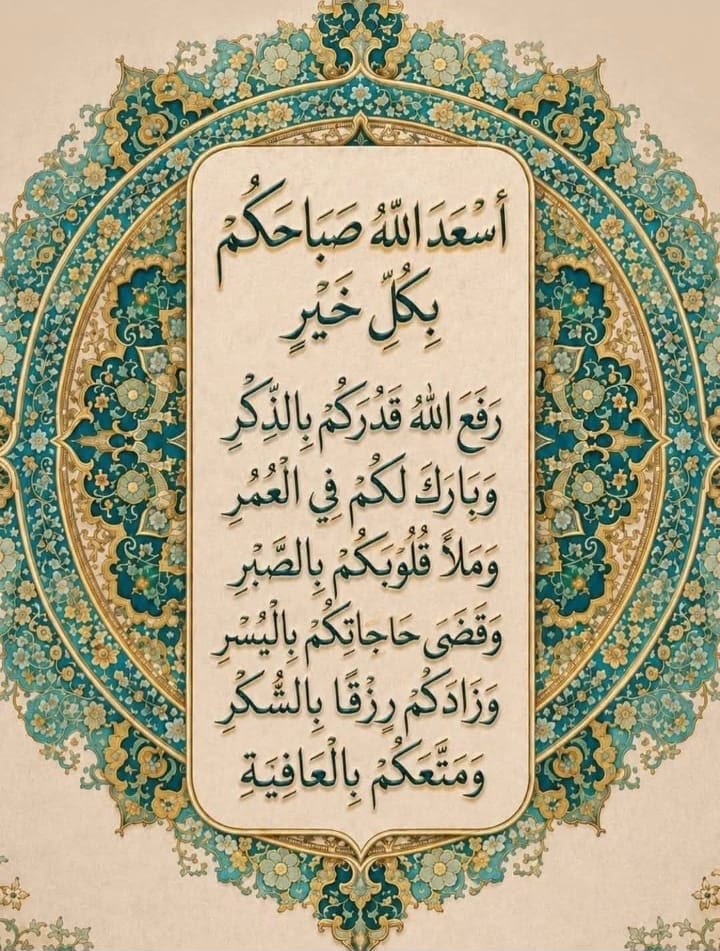 أَسْعَدَ اللّٰهُ صَبَاحَكُمْ
بِكُلِّ خَيْرٍ
رَفَعَ اللّٰهُ قَدْرَكُمْ بِالذِّكْرِ
وَبَارَكَ لَكُمْ فِي الْعُمُرِ
وَمَلَأَ قُلُوْبَكُمْ بِالصَّبْرِ
وَقَضَى حَاجَاتِكُمْ بِالْيُسْرِ
وَزَادَكُمْ رِزْقًا بِالشُّكْرِ
وَمَتَّعَكُمْ بِالْعَافِيَةِ